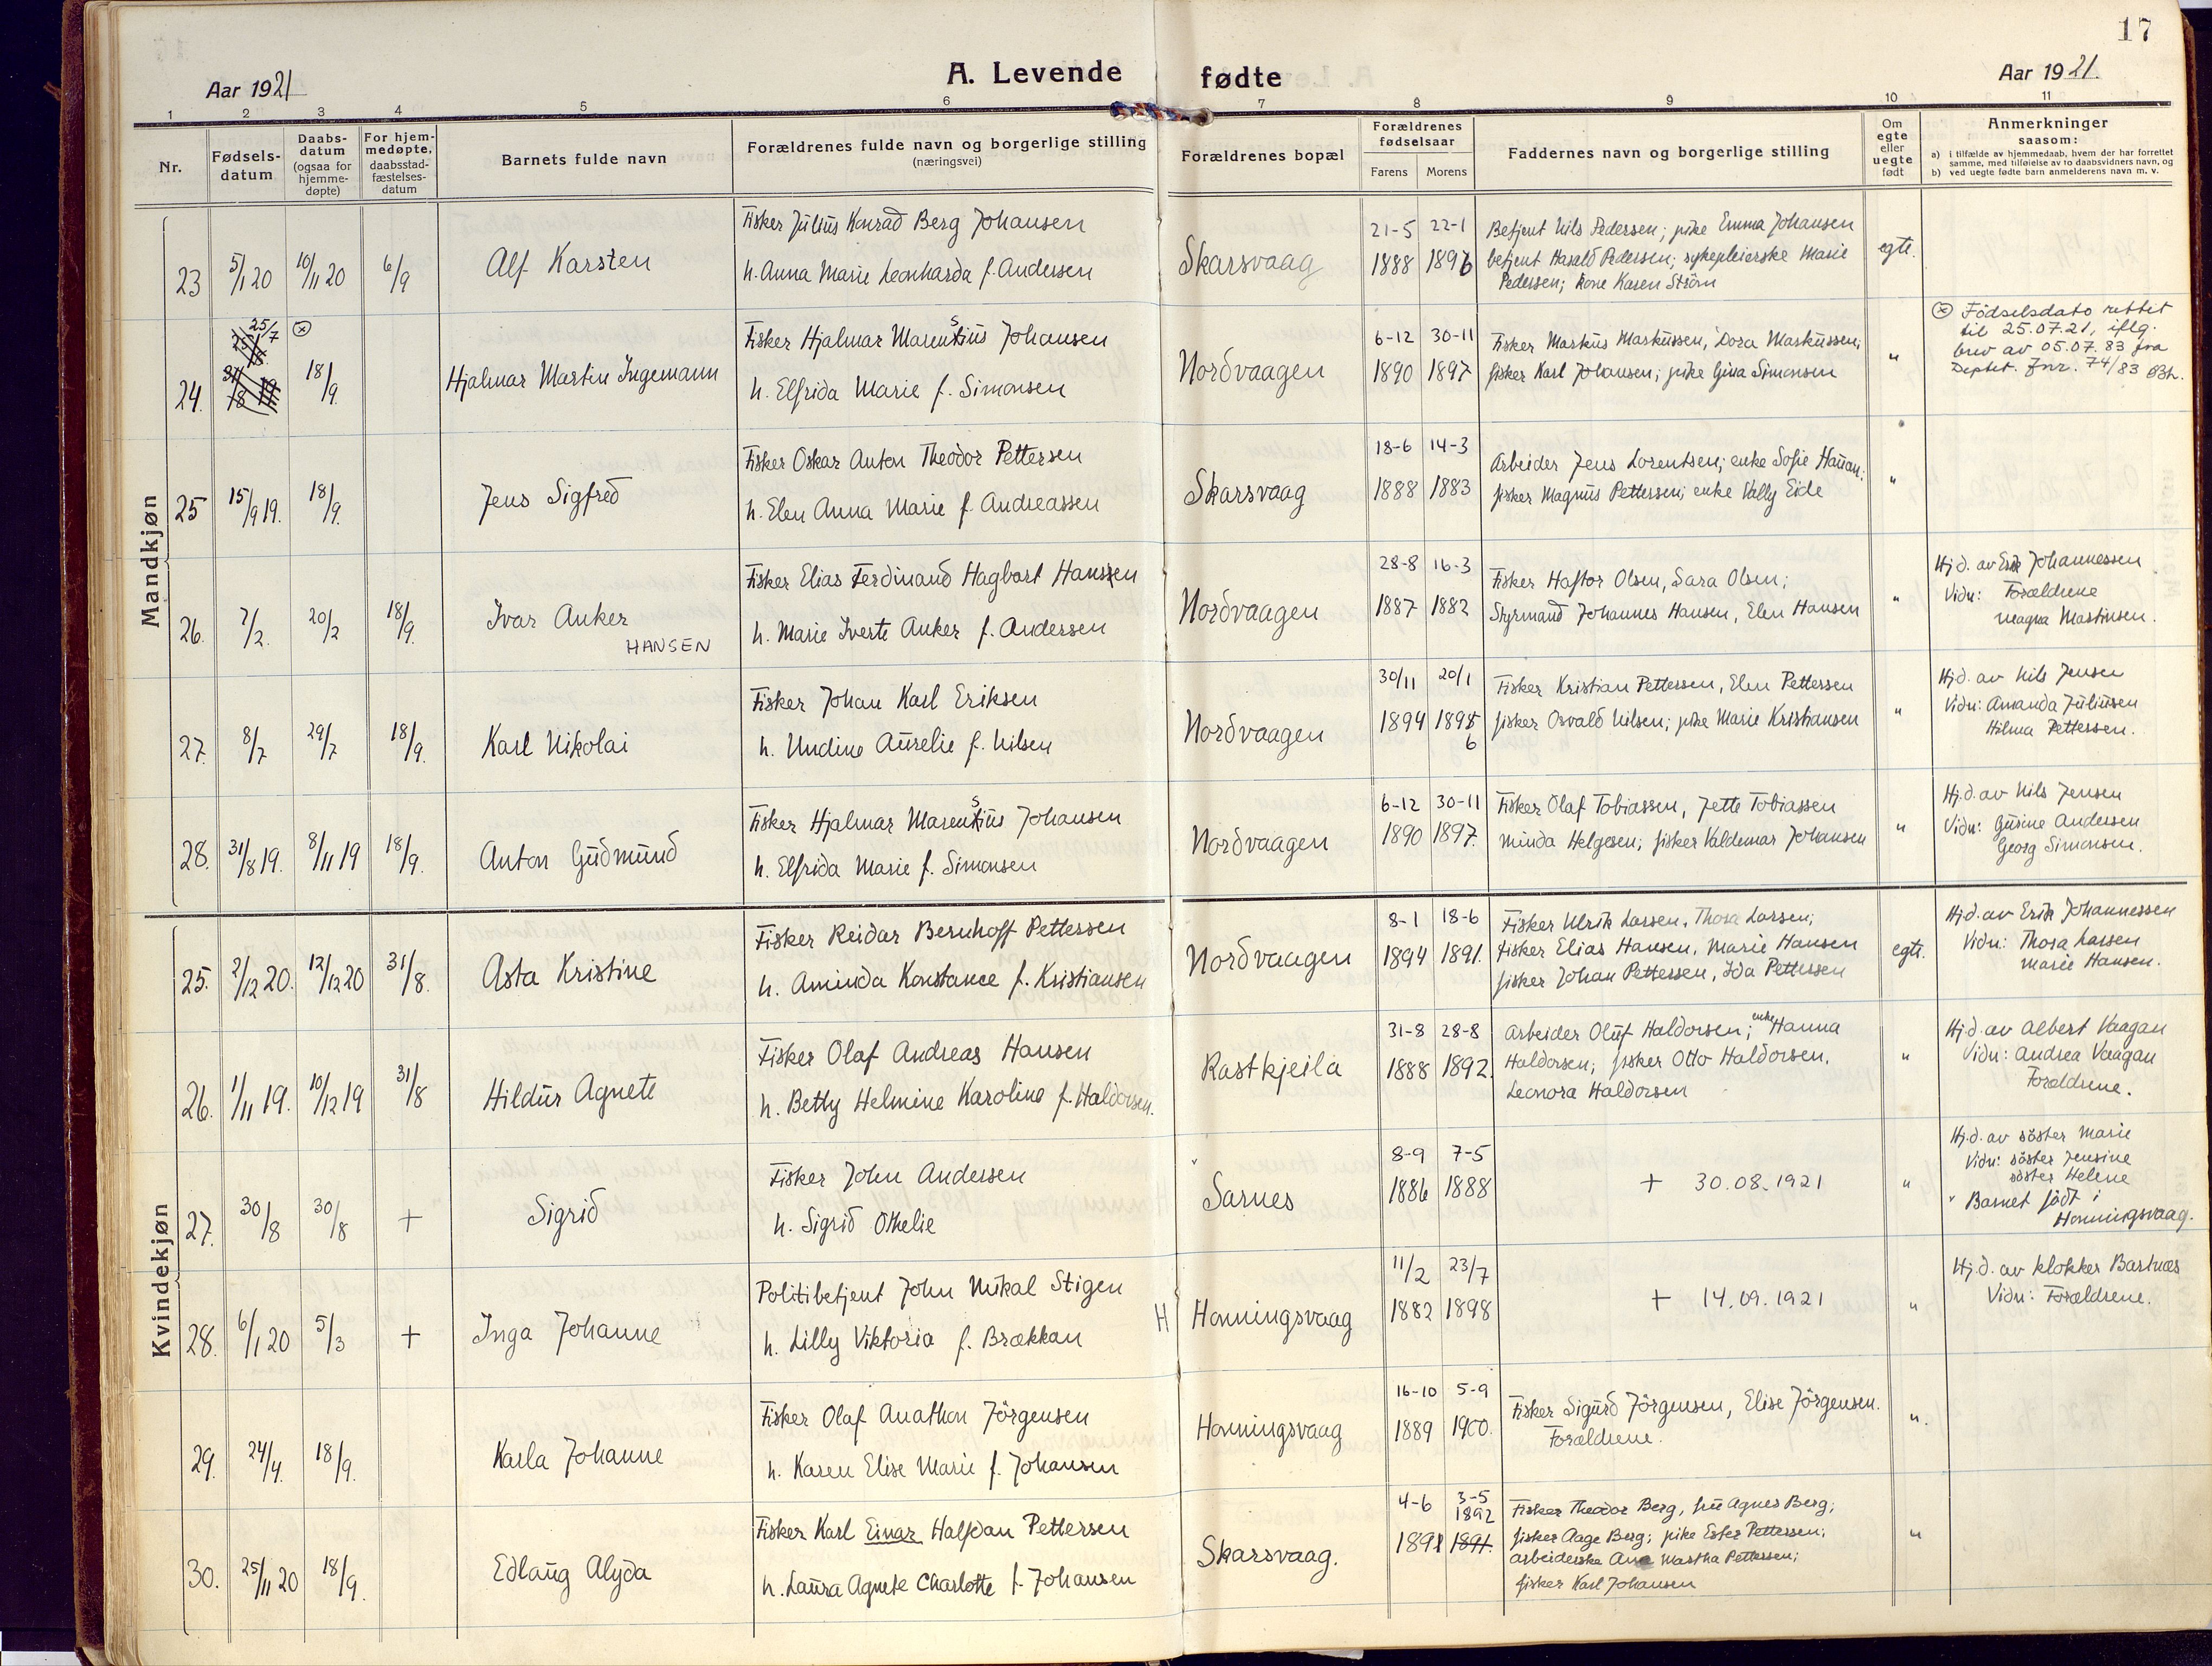 17
Aar 1921
A. Levende fødte
Aar 1921.
1 2 3 4 5 6 7 8 9 10 11
Nr.
Fødsels-
datum
Daabs-
datum
(ogsaa for
hjemme-
døpte)
For hjem-
medøpte,
daabsstad-
fæstelses-
datum
Barnets fulde navn
Forældrenes fulde navn og borgerlige stilling
(næringsvei)
Forældrenes bopæl
Forældrenes
fødselsaar
Farens Morens
Faddernes navn og borgerlige stilling
Om
egte
eller
uegte
født
Anmerkninger
saasom:
a) i tilfælde av hjemmedaab, hvem der har forrettet
samme, med tilføielse av to daabsvidners navn, og
b) ved uegte fødte barn anmelderens navn m. v.
Mandkjøn
23 5/1 20 10/11 20 6/9 Alf Karsten
Fisker Julius Konrad Berg Johansen
h. Anna Marie Leonharda f. Andersen
Skarsvaag
21-5 22-1
1888 1896
Betjent Nils Pedersen; pike Emma Johansen
betjent Harald Pedersen; sykepleierske Marie
Pedersen; kone Karen Ström
egte.
24. 25/7 18/9. Hjalmar Martin Ingemann
Fisker Hjalmar Marensius Johansen
h. Elfrida Marie f. Simonsen
Nordvaagen
6-12 30-11
1890 1897
Fisker Markus Markussen, Dora Markussen;
fisker Karl Johansen; pike Gina Simonsen
"
Födselsdato rettet
til 25.07.21, iflg.
brev av 05.07.83 fra
Deptet. Jnr. 74/83
25 15/9 19. 18/9. Jens Sigfred
Fisker Oskar Anton Theodor Pettersen
h. Elen Anna Marie f. Andreassen
Skarsvaag
18-6 14-3
1888 1883
Arbeider Jens Lorentsen; enke Sofie
fisker Magnus Pettersen; enke Vally Eide
"
26. 7/2. 20/2 18/9. Ivar Anker
HANSEN
Fisker Elias Ferdinand Hagbart Hansen
h. Marie Iverte Anker f. Andersen
Nordvaagen
28-8 16-3
1887 1882
Fisker Haftor Olsen, Sara Olsen;
Styrmand Johannes Hansen, Elen Hansen
"
Hj.d. av Erik Johannessen
Vidn: Forældrene
Magna Martinsen.
27. 8/7 29/7 18/9. Karl Nikolai
Fisker Johan Karl Eriksen
h. Undine Aurelie f. Nilsen
Nordvaagen
30/11 20/1
1894 1895
6
Fisker Kristian Pettersen, Elen Pettersen
fisker Osvald Nilsen; pike Marie Kristiansen
"
Hj.d. av Nils Jensen
Vidn: Amanda Juliusen
Hilma Pettersen.
28. 31/8 19. 8/11 19 18/9. Anton Gudmund
Fisker Hjalmar Marensius Johansen
h. Elfrida Marie f. Simonsen
Nordvaagen
6-12 30-11
1890 1897.
Fisker Olaf Tobiassen, Jette Tobiassen
Minda Helgesen; fisker Valdemar Johansen
"
Hj.d. av Nils Jensen
Vidn: Gusine Andersen
Georg Simonsen.
Kvindekjøn
25. 2/12 20. 12/12 20 31/8. Asta Kristine
Fisker Reidar Bernhoff Pettersen
h. Aminda Konstance f. Kristiansen
Nordvaagen
8-1 18-6
1894 1891.
Fisker Ulrik Larsen, Thora Larsen;
fisker Elias Hansen, Marie Hansen
fisker Johan Pettersen, Ida Pettersen
egte.
Hj.d. av Erik Johannessen
Vidn: Thora Larsen
Marie Hansen.
26. 1/11 19. 10/12 19 31/8 Hildur Agnete
Fisker Olaf Andreas Hansen
h. Betty Helmine Karoline f. Haldorsen.
Kastkjeila
31-8 28-8
1888 1892.
Arbeider Oluf Haldorsen; enke Hanna
Haldorsen; fisker Otto Haldorsen.
Leonora Haldorsen
"
Hj.d. av Albert Vaagan
Vidn: Andrea Vaagan
Forældrene.
27. 30/8 30/8 + Sigrid
Fisker John Andersen
h. Sigrid Othelie
Sarnes
8-9 7-5
1886 1888
+ 30.08.1921
"
Hj.d. av söster Marie
Vidn: söster Jensine
söster Helene
" Barnet födt i
Honningsvaag.
28. 6/1 20 5/3 + Inga Johanne
Politibetjent John Mikal Stigen
h. Lilly Viktoria f. Brækkan
H Honningsvaag
11/2 23/7
1882 1898
+ 14.09.1921
"
Hj.d. av klokker Bartnæs
Vidn: Forældrene.
29. 24/4. 18/9. Karla Johanne
Fisker Olaf Anathon Jörgensen
h. Karen Elise Marie f. Johansen
Honningsvaag
16-10 5-9
1889 1900.
Fisker Sigurd Jörgensen, Elise Jörgensen.
Forældrene.
".
30. 25/11 20 18/9. Edlaug Alyda
Fisker Karl Einar Halfdan Pettersen
h. Laura Agnete Charlotte f. Johansen
Skarsvaag.
4-6 3-5
1892
1891 1891.
Fisker Theodor Berg, fru Agnes Berg;
fisker Aage Berg; pike Ester Pettersen;
arbeiderske Ane Martha Pettersen;
fisker Karl Johansen
"